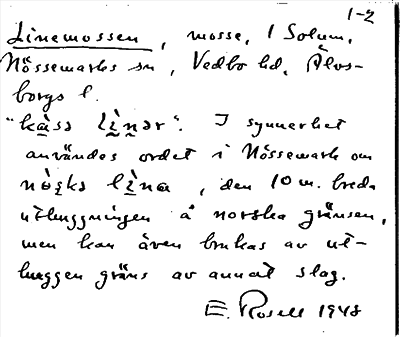 1-2
Linemossen, mosse, i Solum,
Nössemarks sn, Vedbo hd, Älvs-
borgs l.
"kàsa lìnər". I synnerhet
användes ordet i Nössemark om
nòska lìna, den 10 m. breda
uthuggningen å norska gränsen,
men kan även brukas av ut-
huggen gräns av annat slag.
E. Rosell 1948